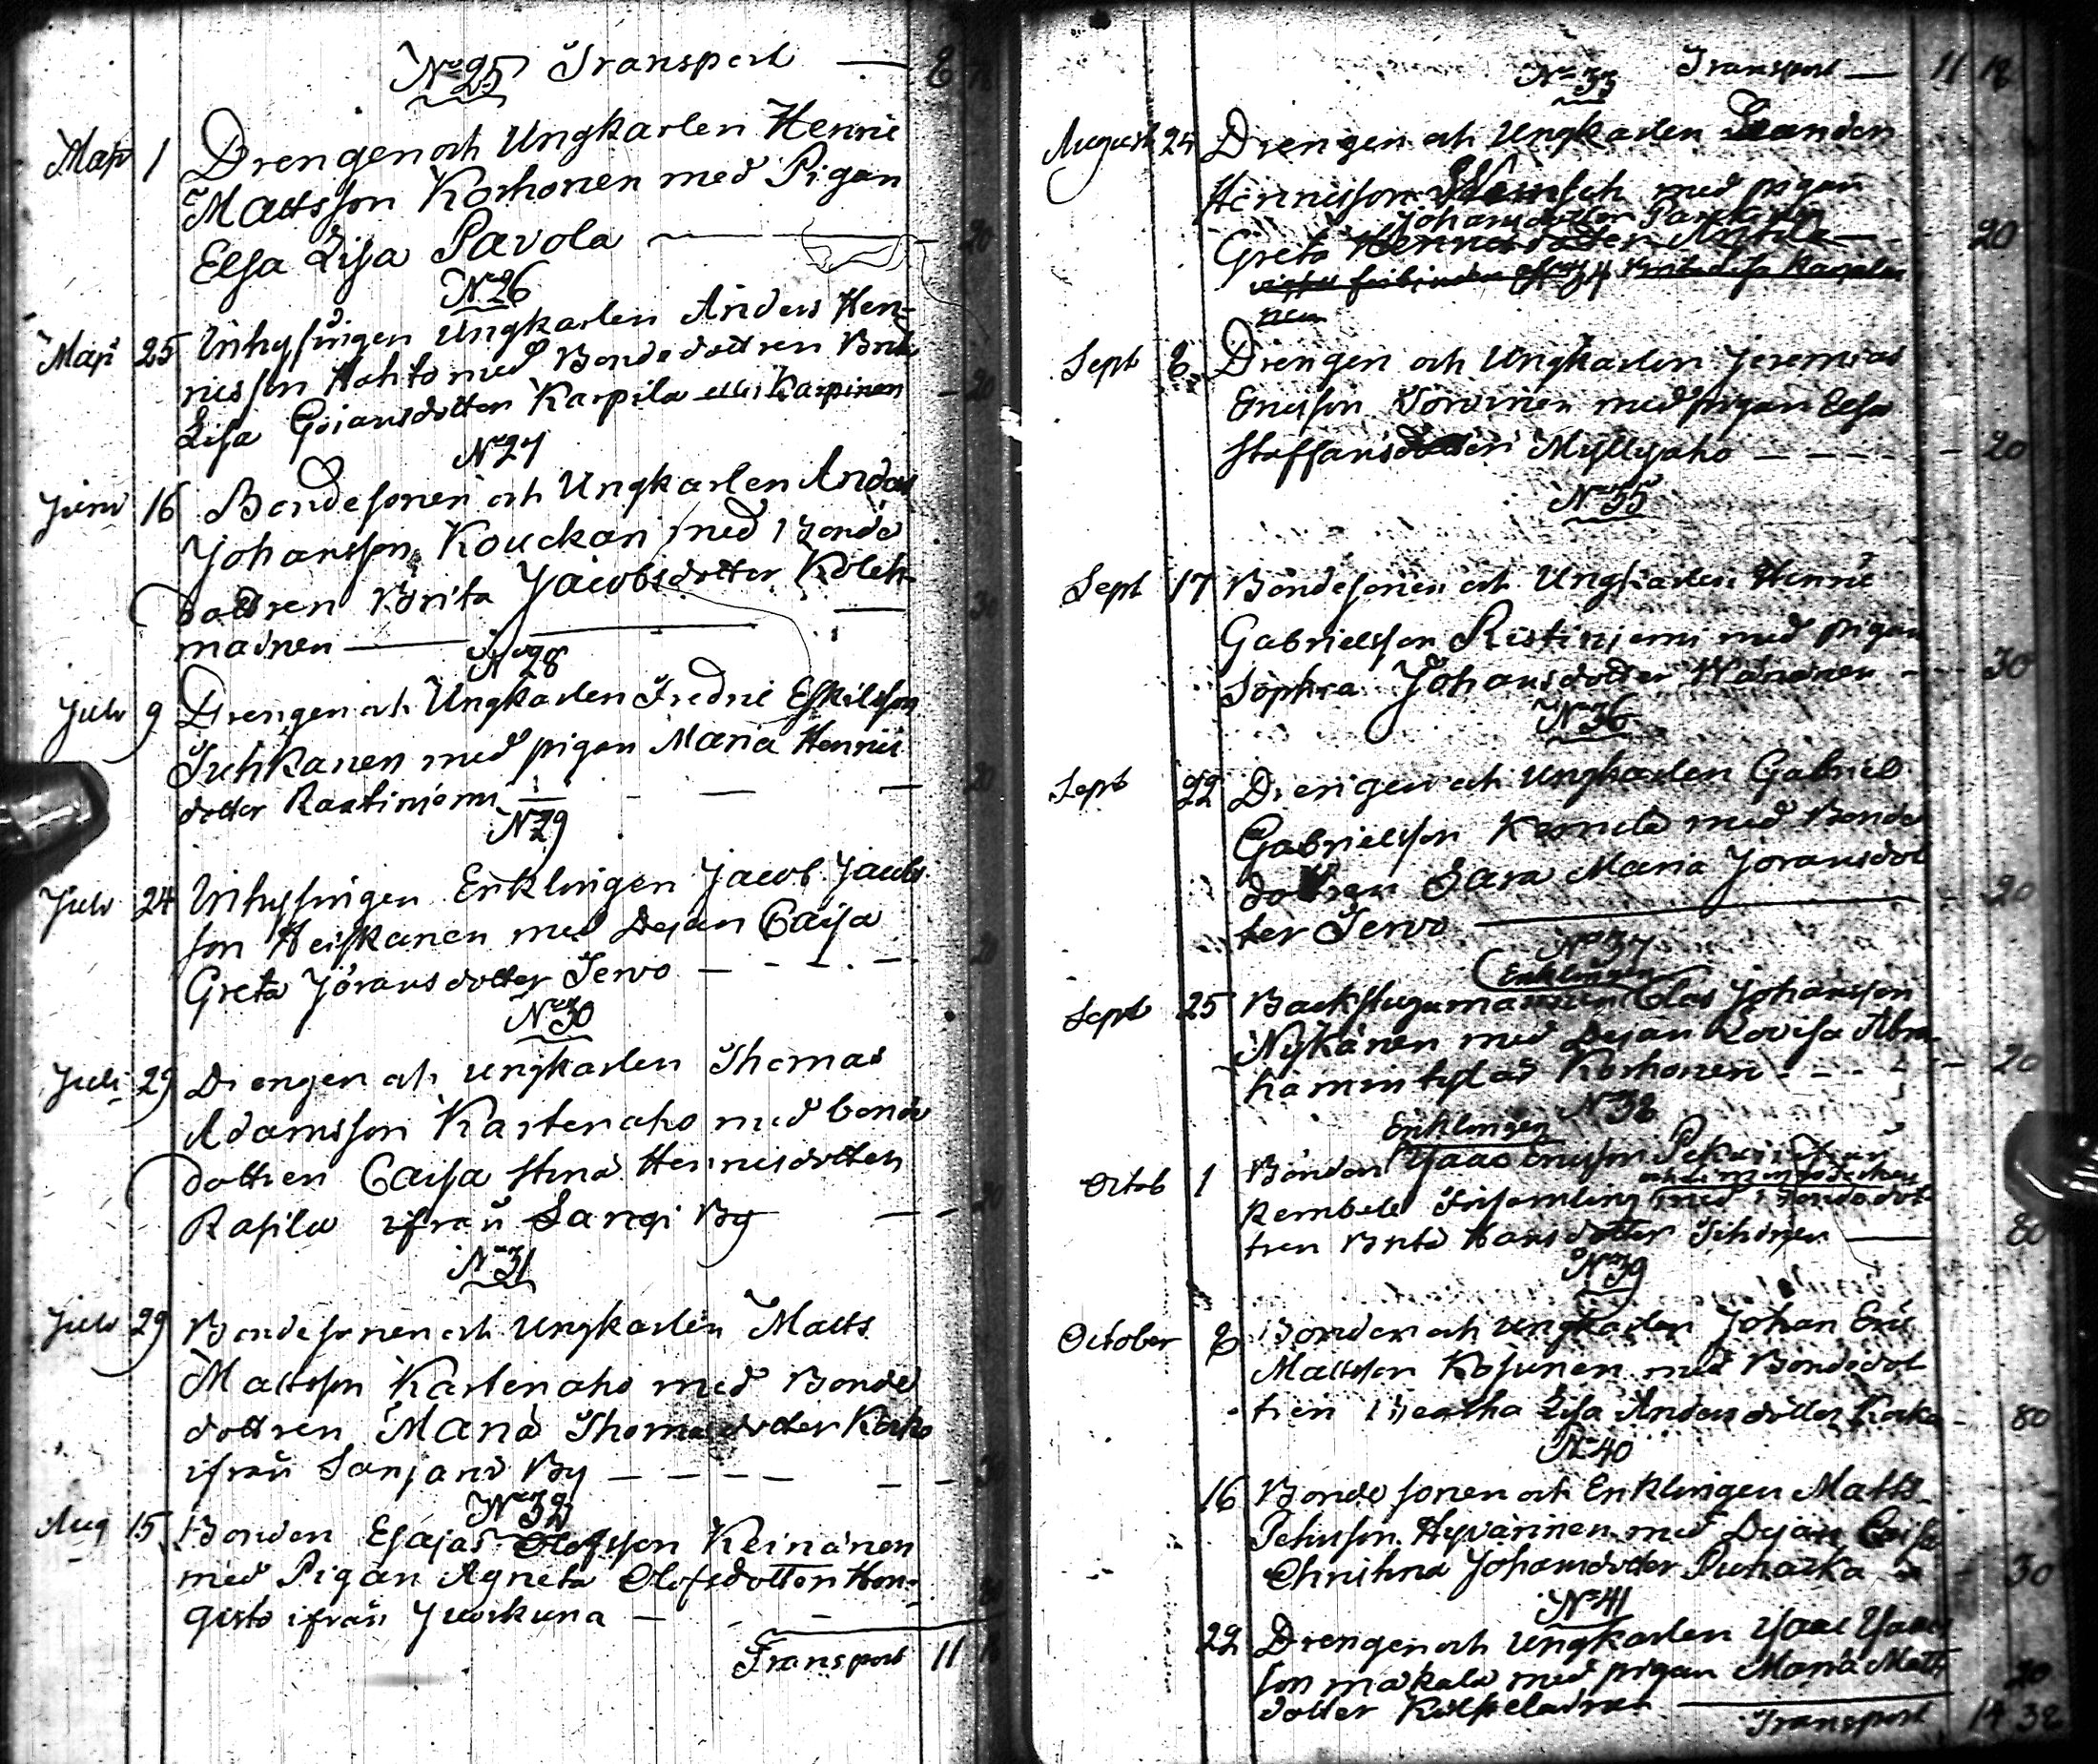 No 25 Transport — 8 78
Maji 1 Drengen och Ungkarlen Henric
Mattsson Korhonen med Pigan
Elsa Lisa Pavola — 20
No 26
Maji 25 Inhysingen Ungkarlen Anders Hen-
ricsson Kohto med Bondedottren Brita
Lisa Göransdotter Karpila eller Karpinen — 20
No 27
Juni 16 Bondesonen och Ungkarlen Anders
Johansson Kouckari med Bonde
dottren Brita Jacobsdotter Koleh-
mainen — 30
No 28
Juli 9 Drengen och Ungkarlen Fredric Eskilsson
Tuhkanen med pigan Maria Henrics
dotter Rautiniemi — 20
No 29
Juli 24 Inhysingen Enklingen Jacob Jacobs
son Heiskanen med Dejan Caisa
Greta Jöransdotter Tervo — 20
No 30
Juli 29 Drengen och ungkarlen Thomas
Adamsson Kartenaho med bonde
dottren Caisa Stina Henricsdotter
Rasila ifrån Sangi By — 20
No 31
Juli 29 Bondesonen och Ungkarlen Matts
Mattsson Kartenaho med Bonde
dottren Maria Thomasdotter Kocko
ifrån Sanjani By — —
No 32
Aug 15 Bonden Esajas Olofsson Keinänen
med Pigan Agneta Olofsdotter Hon-
gisto ifrån Juorkuna —
Transport 11 18
No 33 Transport — 11 18
August 25 Drengen och Ungkarlen
Henricsson med pigan
Johansdotter
Greta Henricsdotter — 20
Sept 8 Drengen och Ungkarlen Jeremias
Ericsson Törvinen med pigan Elsa
Staffansdotter Myllyaho — 20
No 35
Sept 17 Bondesonen och Ungkarlen Henric
Gabrielsson Ristiniemi med pigan
Sophia Johansdotter Wänänen — 30
No 36
Sept 22 Drengen och Ungkarlen Gabriel
Gabrielsson Kemilä med Bonde
dottren Sara Maria Jöransdot
ter Tervo — 20
No 37
Enklingen
Sept 25 Backstugumannen Clas Johansson
Nykänen med Dejan Lovisa Abra
hamintytär Korhonen — 20
No 38
Enklingen
Octob 1 Bonden Isaac Ericsson ifrån
Kembele Församling med Bondedot
tren Brita Hansdotter Tihinen — 80
No 39
October 8 Bonden och Ungkarlen Johan Eric
Mattsson Kosunen med Bondedot
tren Beatha Lisa Andersdotter Kocko — 80
No 40
16 Bonde sonen och Enklingen Matts
Pehrsson Hyvärinen med Dejan Caisa
Christina Johansdotter Punacka — 30
No 41
22 Drengen och Ungkarlen Isaac Isaacs
son Makala med pigan Maria Matts
dotter — 20
Transport 14 38